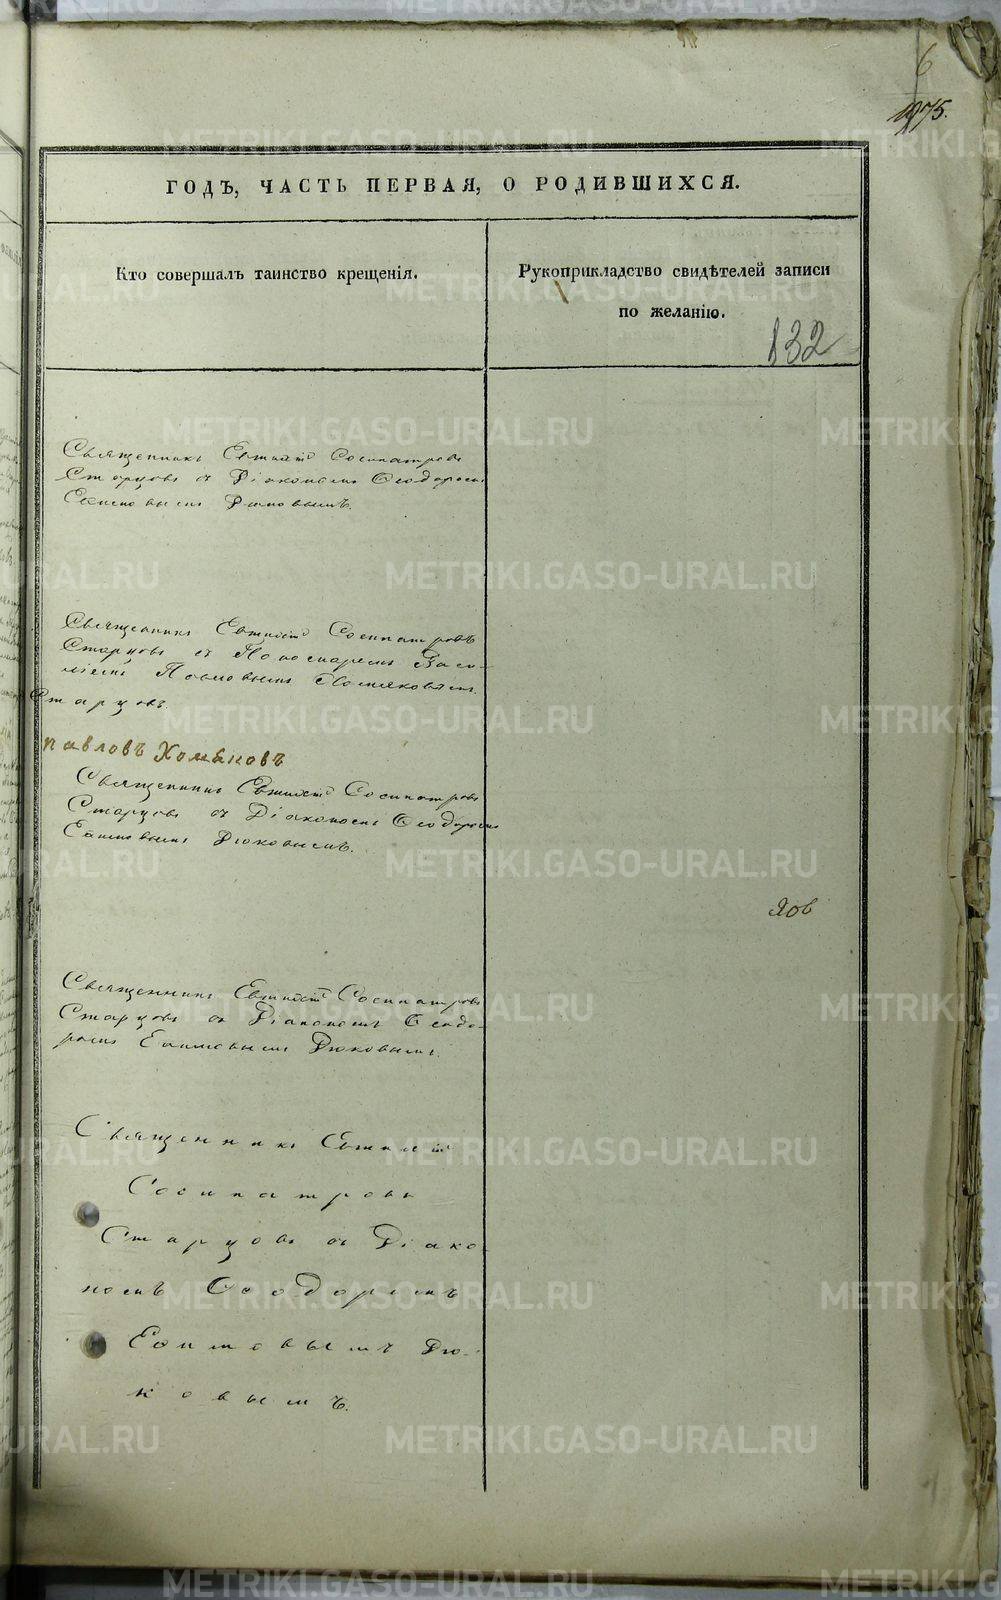 6
1975.
ГОДЪ, ЧАСТЬ ПЕРВАЯ, О РОДИВШИХСЯ.
Кто совершалъ таинство крещенія.
Рукоприкладство свидѣтелей записи
по желанію.
132
Священникъ Евѳимій Сосипатровъ
Старцовъ съ Діакономъ Ѳеодоромъ
Ефимовымъ Дюковымъ.
Священникъ Евѳимій Сосипатровъ
Старцовъ съ Понамаремъ Васи-
ліемъ
Старцовъ.
павловъ Хомяковъ
Священникъ Евѳимій Сосипатровъ
Старцовъ съ Діакономъ Ѳеодоромъ
Ефимовымъ Дюковымъ.
Яов
Священникъ Евѳимій Сосипатровъ
Старцовъ съ Діакономъ Ѳеодо-
ромъ Ефимовымъ Дюковымъ.
Священникъ Евѳимій
Сосипатровъ
Старцовъ съ Діако-
номъ Ѳеодоромъ
Ефимовымъ Дю-
ковымъ.
METRIKI.GASO-URAL.RU